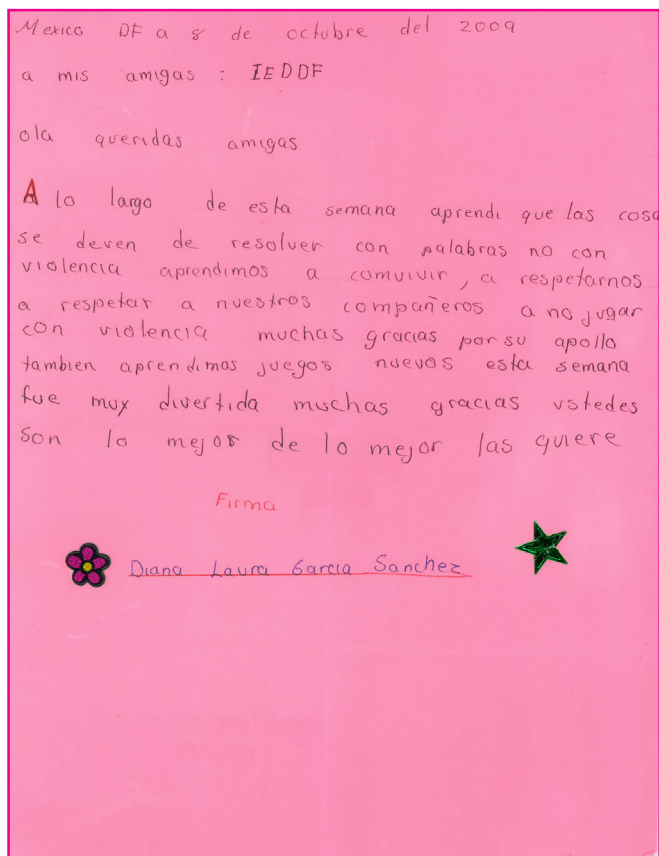 Mexico DF a 8 de octubre del 2009
a mis amigas : IEDDF
ola queridas amigas
A lo largo de esta semana aprendi que las cosa
se deven de resolver con palabras no con
violencia aprendimos a comvivir, a respetarnos
a respetar a nuestros compañeros a no jugar
con violencia muchas gracias por su apollo
tambien aprendimos juegos nuevos esta semana
fue muy divertida muchas gracias ustedes
son lo mejor de lo mejor las quiere
Firma
Diana Laura Garcia Sanchez